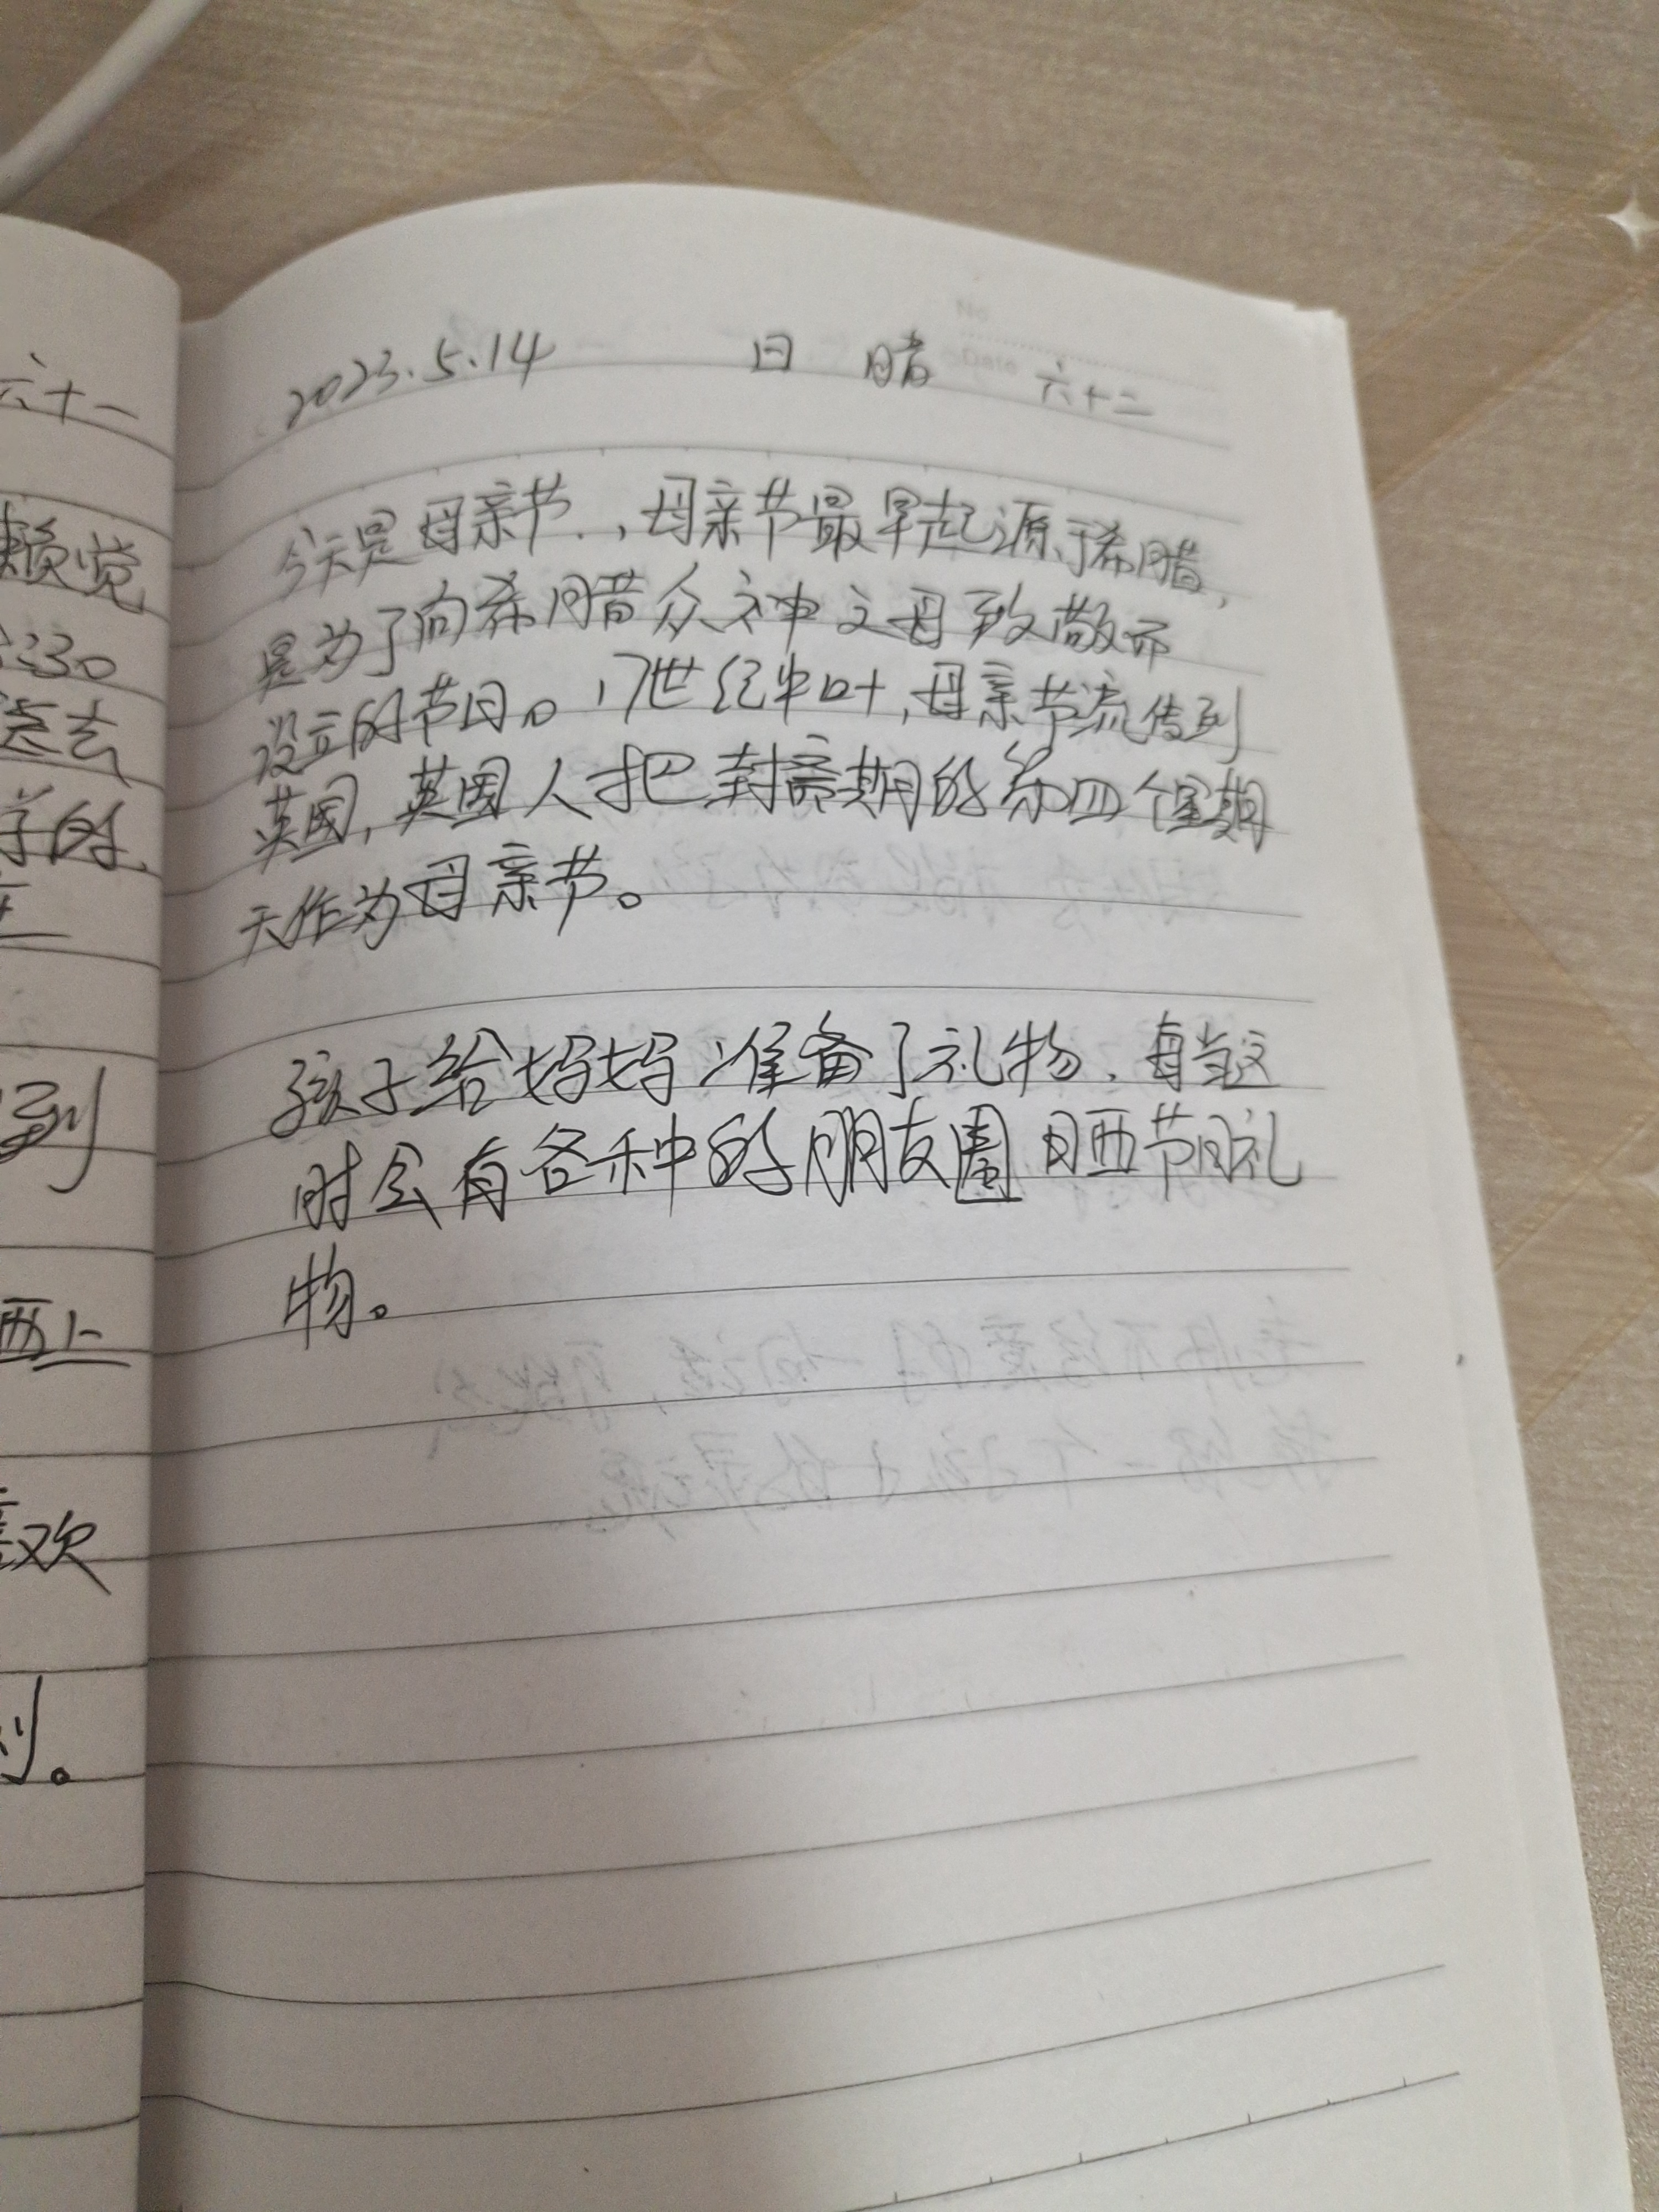 六十一
赖觉
:30
去
学的
到
西上
喜欢
。
No
Date
2023.5.14 日 晴 六十二
今天是母亲节,母亲节最早起源于希腊,
是为了向希腊众神之母致敬而
设立的节日。17世纪中叶,母亲节流传到
英国,英国人把封斋期的第四个星期
天作为母亲节。
孩子给妈妈准备了礼物,每当这
时会有各种的朋友圈晒节日礼
物。